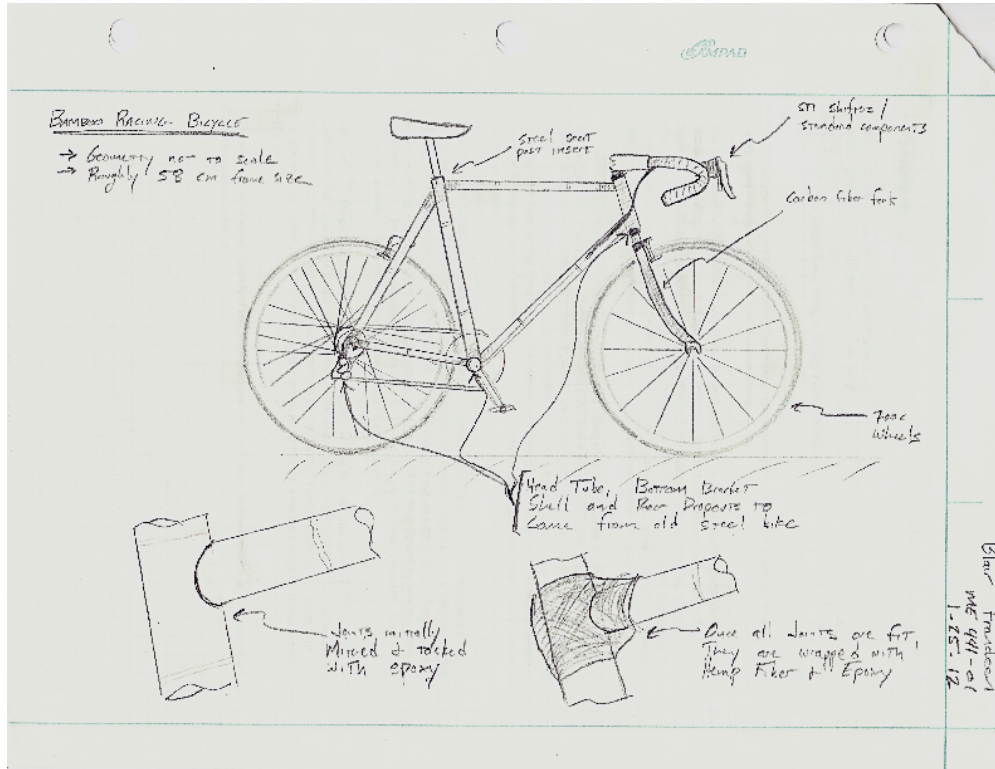 AMPAD
BAMBOO RACING BICYCLE
→ Geometry not to scale
→ Roughly 58 cm frame size
Steel seat
post insert
STI shifters /
standard components
Carbon fiber fork
700c
Wheels
Head Tube, Bottom Bracket
Shell and Rear Dropouts to
Come from old steel bike
Joints initially
Mitred & tacked
with epoxy
Once all Joints are fit,
They are wrapped with
Hemp Fiber & Epoxy
Blair
ME 441-01
1-25-12